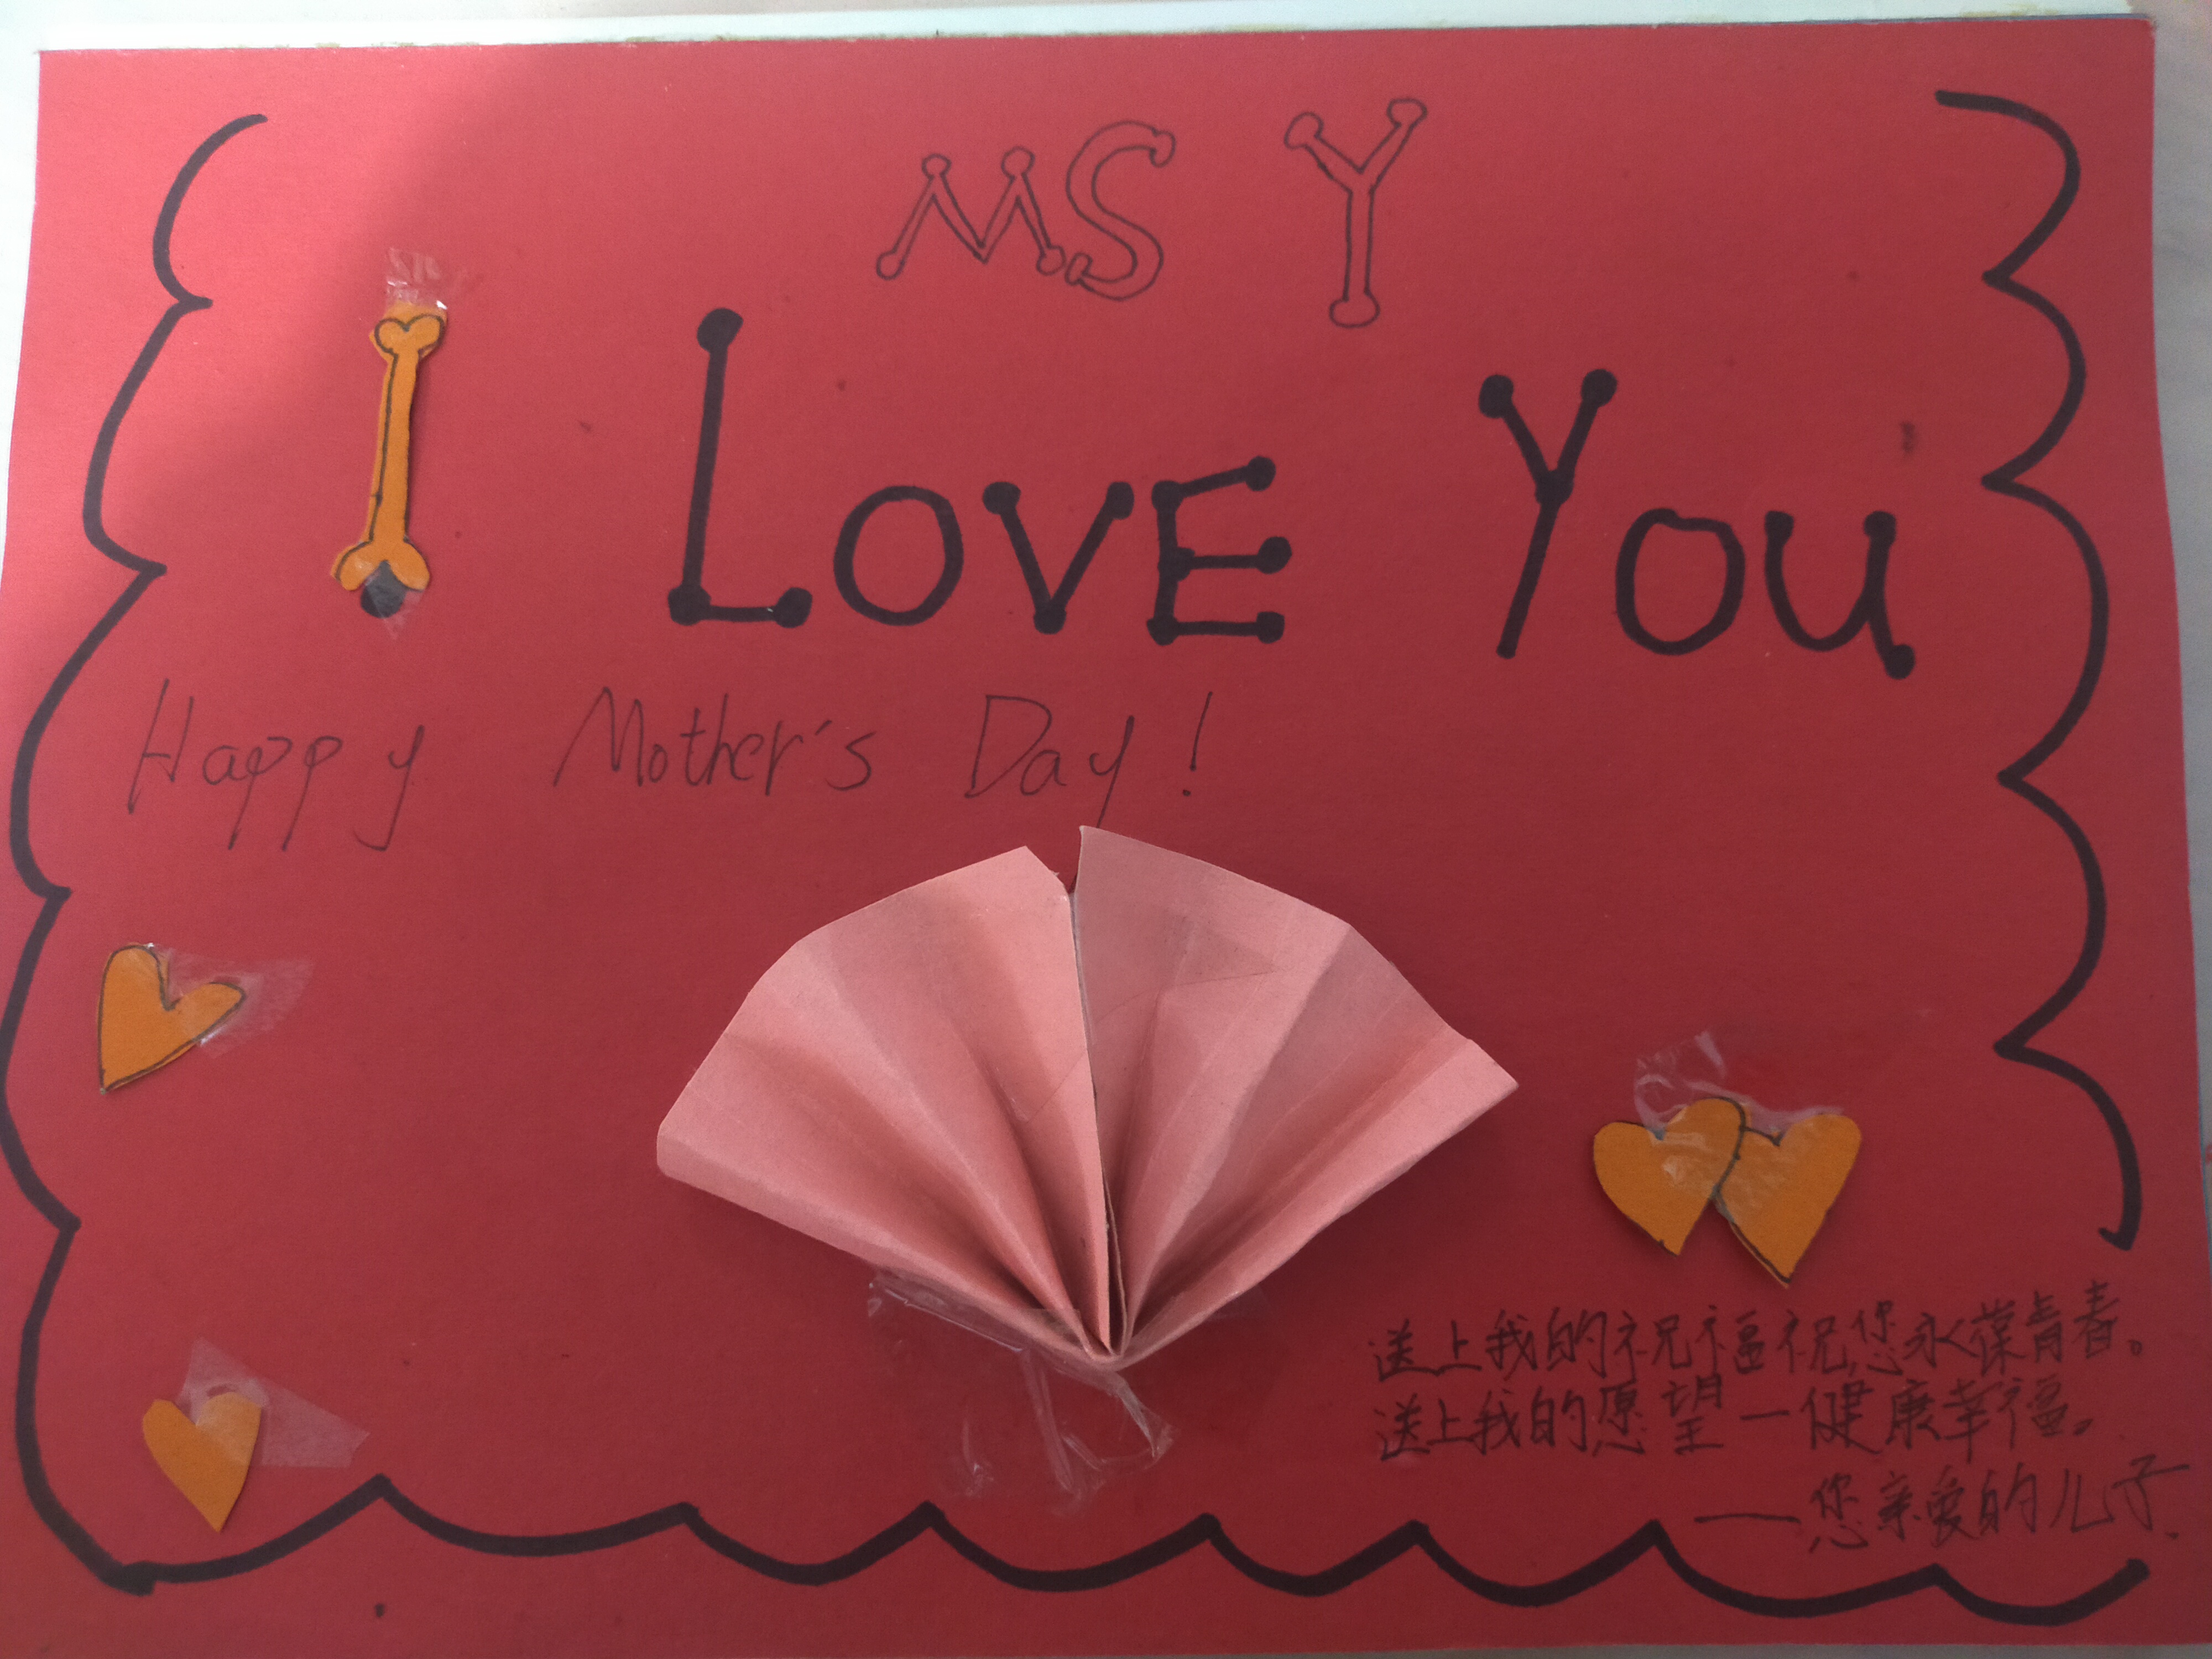 MS Y
I LOVE YOU
Happy Mother's Day!
送上我的祝福祝您永葆青春。
送上我的愿望一健康幸福。
——您亲爱的儿子.